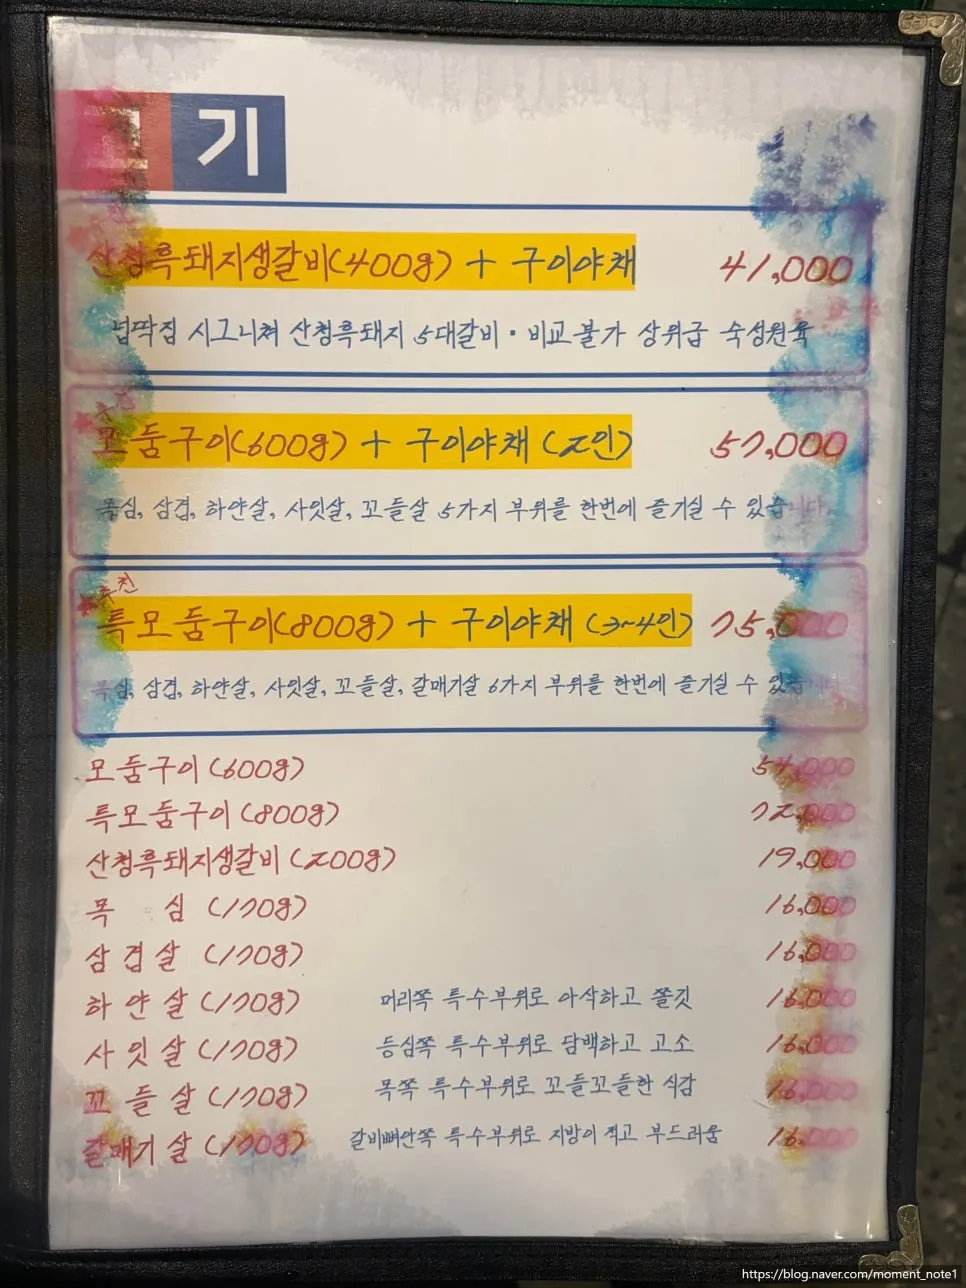 기
산청흑돼지생갈비(400g) + 구이야채 41,000
넙딱집 시그니쳐 산청흑돼지 5대갈비 · 비교불가 상위급 숙성원육
추천
모둠구이(600g) + 구이야채 (2인) 57,000
목심, 삼겹, 하얀살, 사잇살, 꼬들살 5가지 부위를 한번에 즐기실 수 있습니다.
추천
특모둠구이(800g) + 구이야채 (3~4인) 75,000
목심, 삼겹, 하얀살, 사잇살, 꼬들살, 갈매기살 6가지 부위를 한번에 즐기실 수 있습니다
모둠구이(600g) 54,000
특모둠구이(800g) 72,000
산청흑돼지생갈비(200g) 19,000
목 심 (170g) 16,000
삼겹살 (170g) 16,000
하얀살(170g) 머리쪽 특수부위로 아삭하고 쫄깃 16,000
사잇살(170g) 등심쪽 특수부위로 담백하고 고소 16,000
꼬들살(170g) 목쪽 특수부위로 꼬들꼬들한 식감 16,000
갈매기살(170g) 갈비뼈안쪽 특수부위로 지방이 적고 부드러움 16,000
https://blog.naver.com/moment_note1